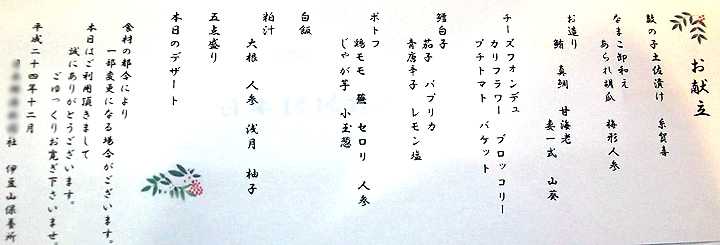 お献立
数の子土佐漬け　糸賀喜
なまこ卸和え
あられ胡瓜　梅形人参
お造り
鮪　真鯛　甘海老
妻一式　山葵
チーズフォンデュ
カリフラワー　ブロッコリー
プチトマト　バケット
鱈白子
茄子　パプリカ
青唐辛子　レモン塩
ポトフ
鶏モモ　蕪　セロリ　人参
じゃが芋　小玉葱
白飯
粕汁
大根　人参　浅月　柚子
五点盛り
本日のデザート
食材の都合により
一部変更になる場合がございます。
本日はご利用頂きまして
誠にありがとうございます。
ごゆっくりお寛ぎ下さいませ。
平成二十四年十二月
社　伊豆山保養所